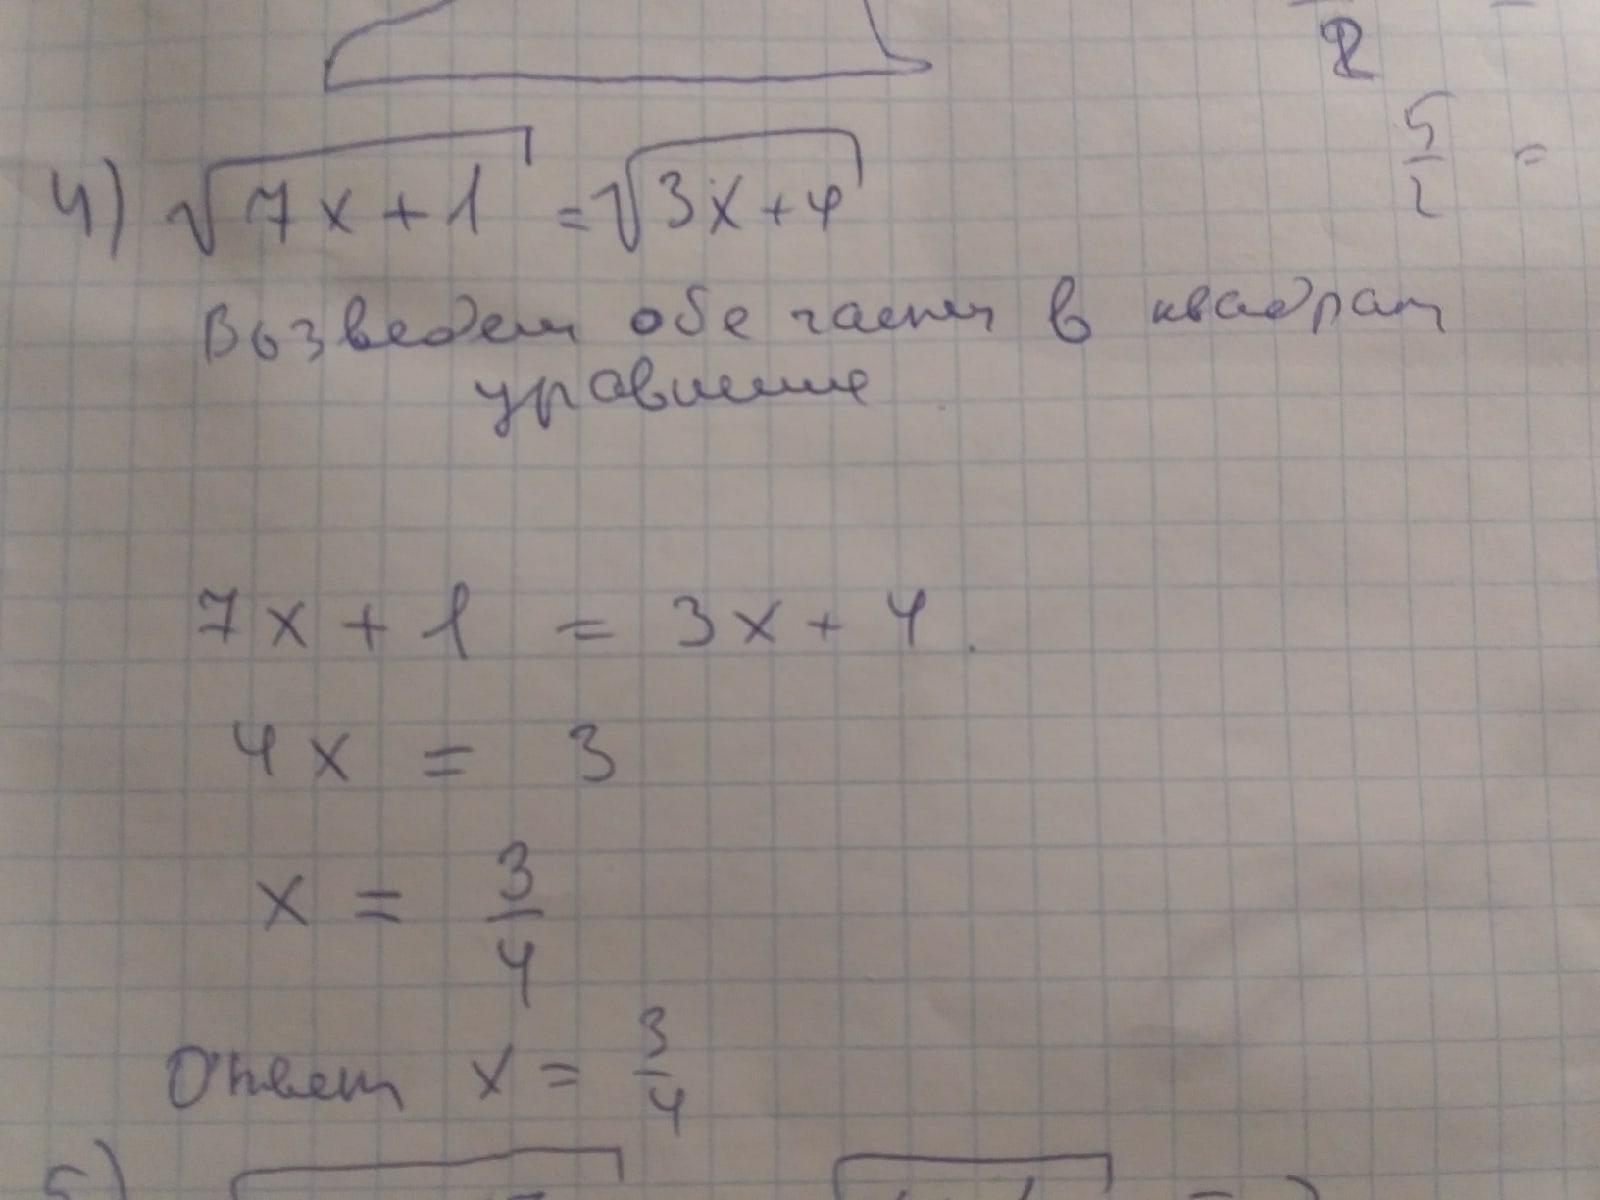 2
5/2 =
4) √(7x+1) = √(3x+4)
Возведем обе части в квадрат
уравнение
7x + 1 = 3x + 4.
4x = 3
x = 3/4
Ответ x = 3/4
5)